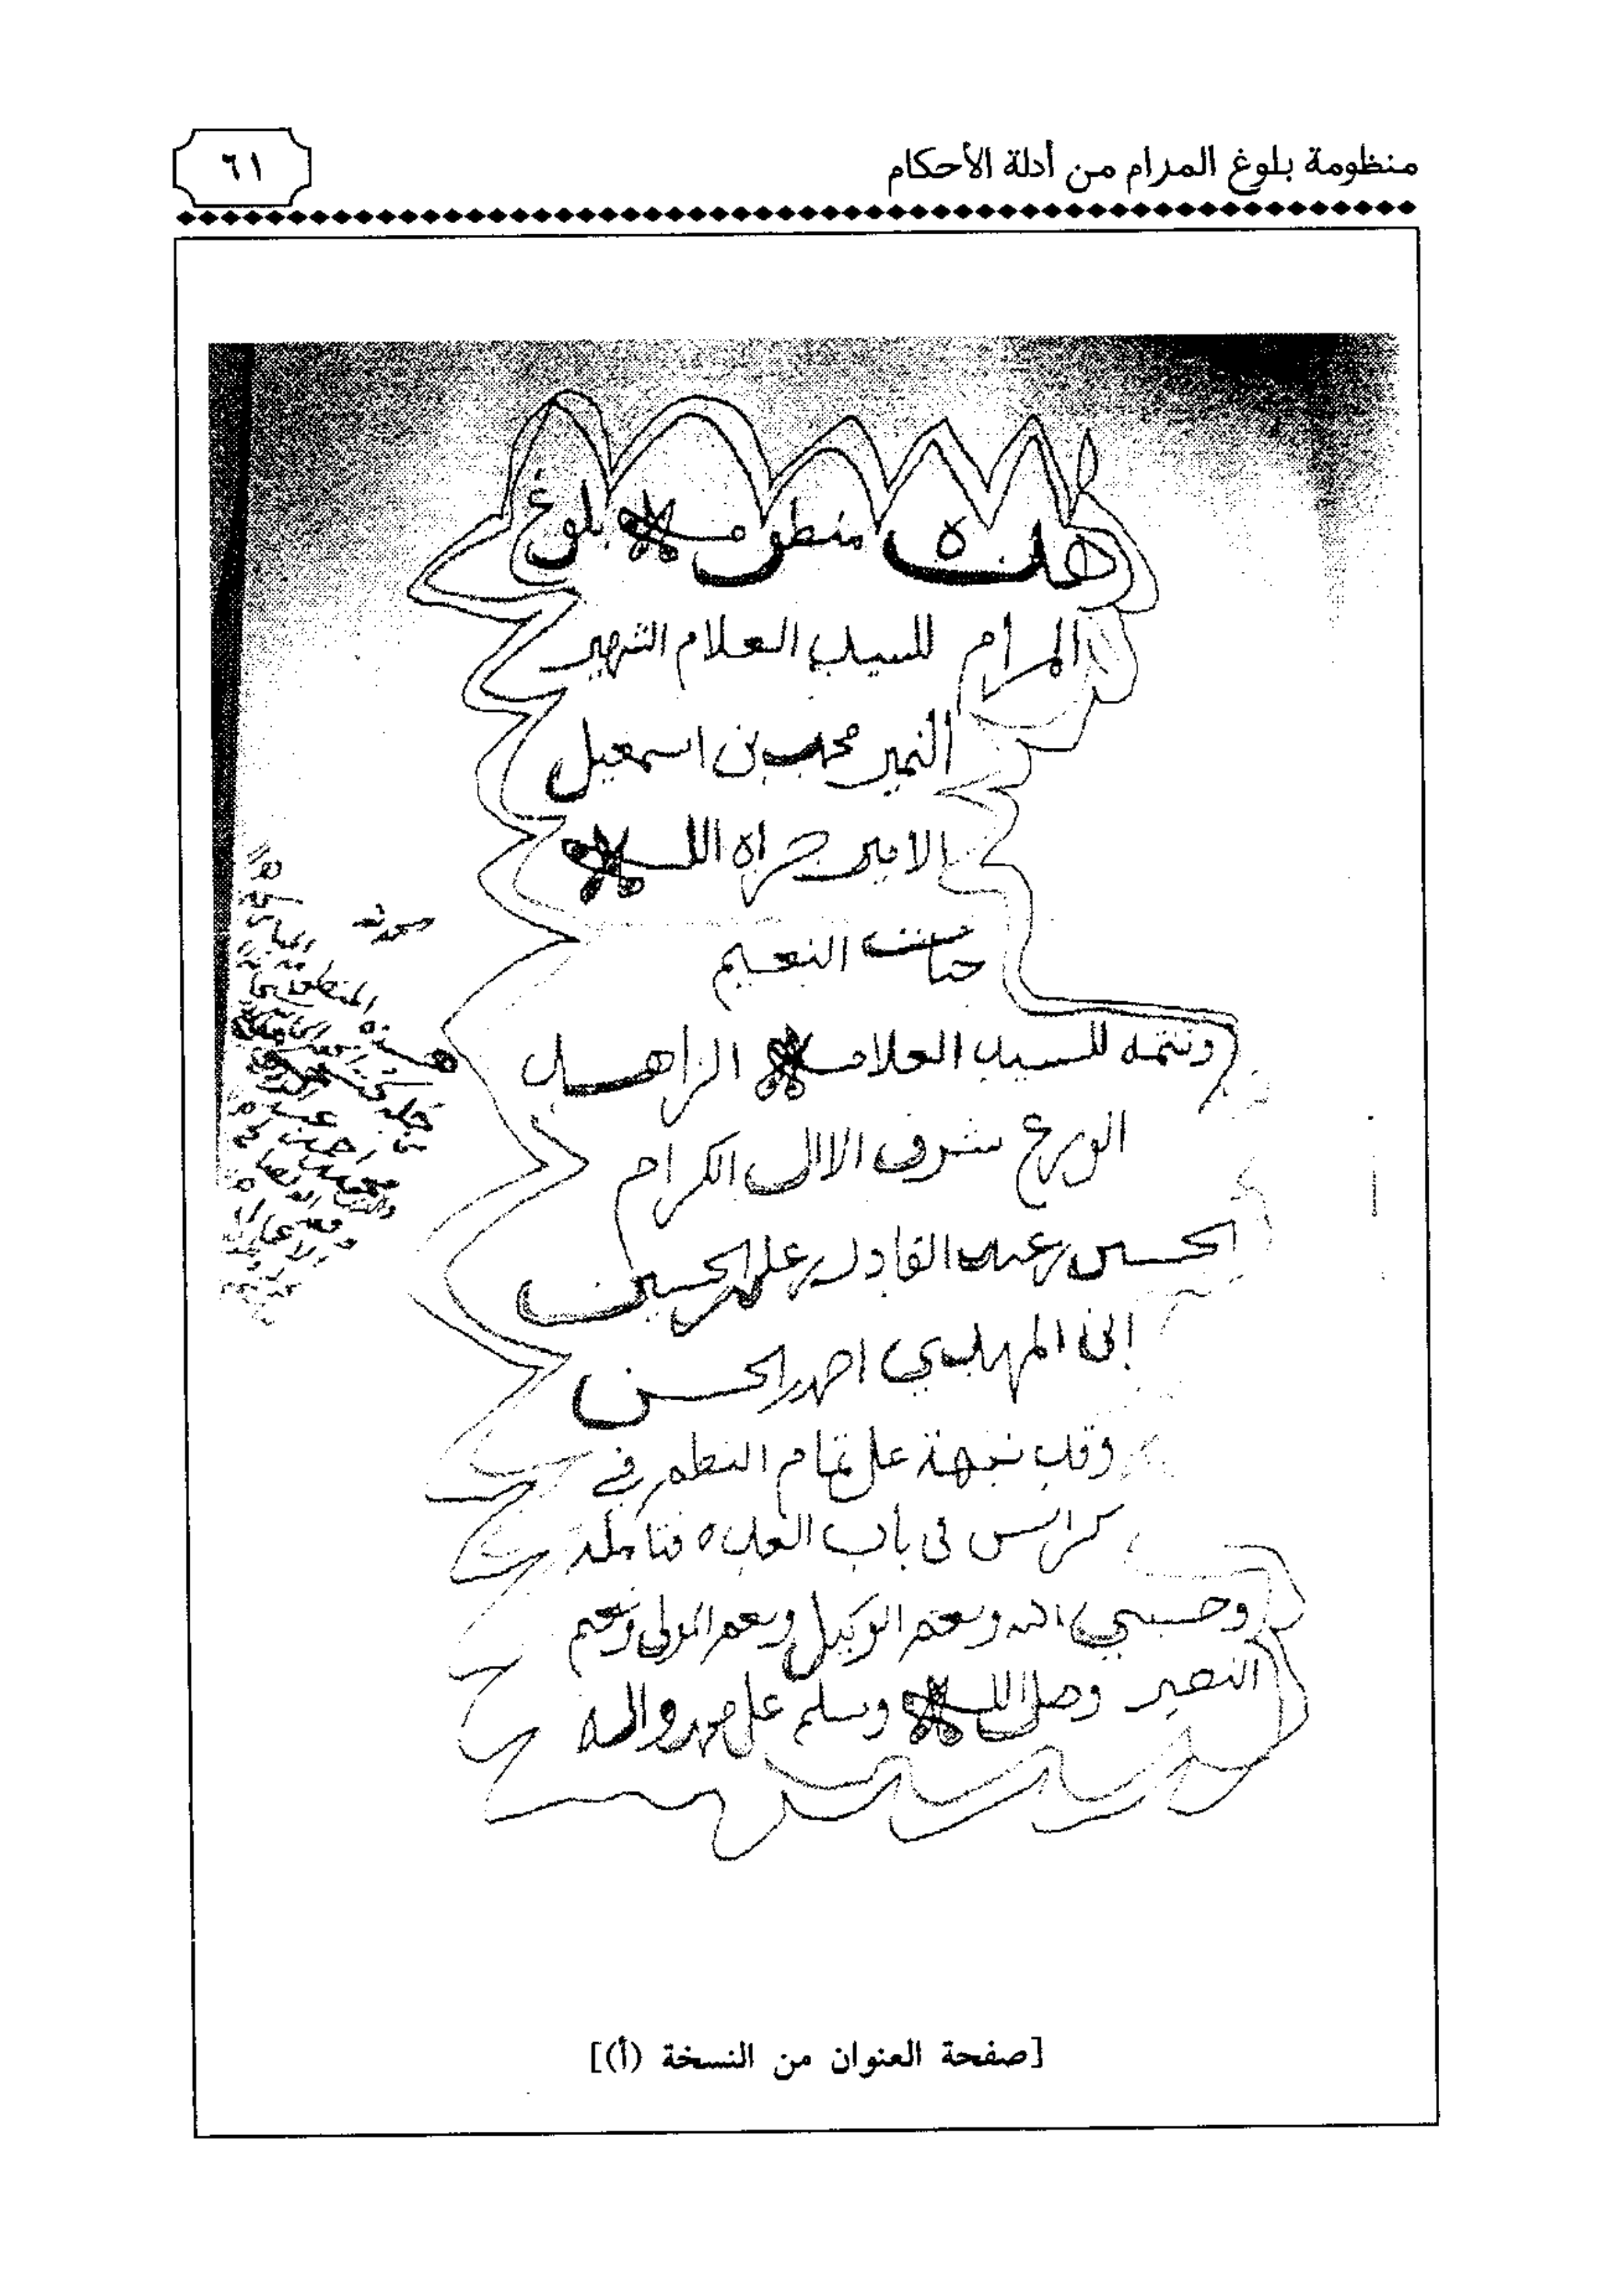 منظومة بلوغ المرام من أدلة الأحكام
٦١
هذه منظومة بلوغ
المرام للسيد العلام الشهير
النمير محمد بن اسمعيل
الامير جزاه الله
جنات النعيم
وتتمه للسيد العلامة الزاهد
الورع شرف الال الكرام
الحسين بن عبد القادر بن علي بن الحسين
إلى المهدي احمد بن الحسن
وقد نبهت على تمام النظم في
كراس في باب العدة فتامله
وحسبي الله ونعم الوكيل ونعم المولى ونعم
النصير وصلى الله وسلم على محمد واله
[صفحة العنوان من النسخة (أ)]